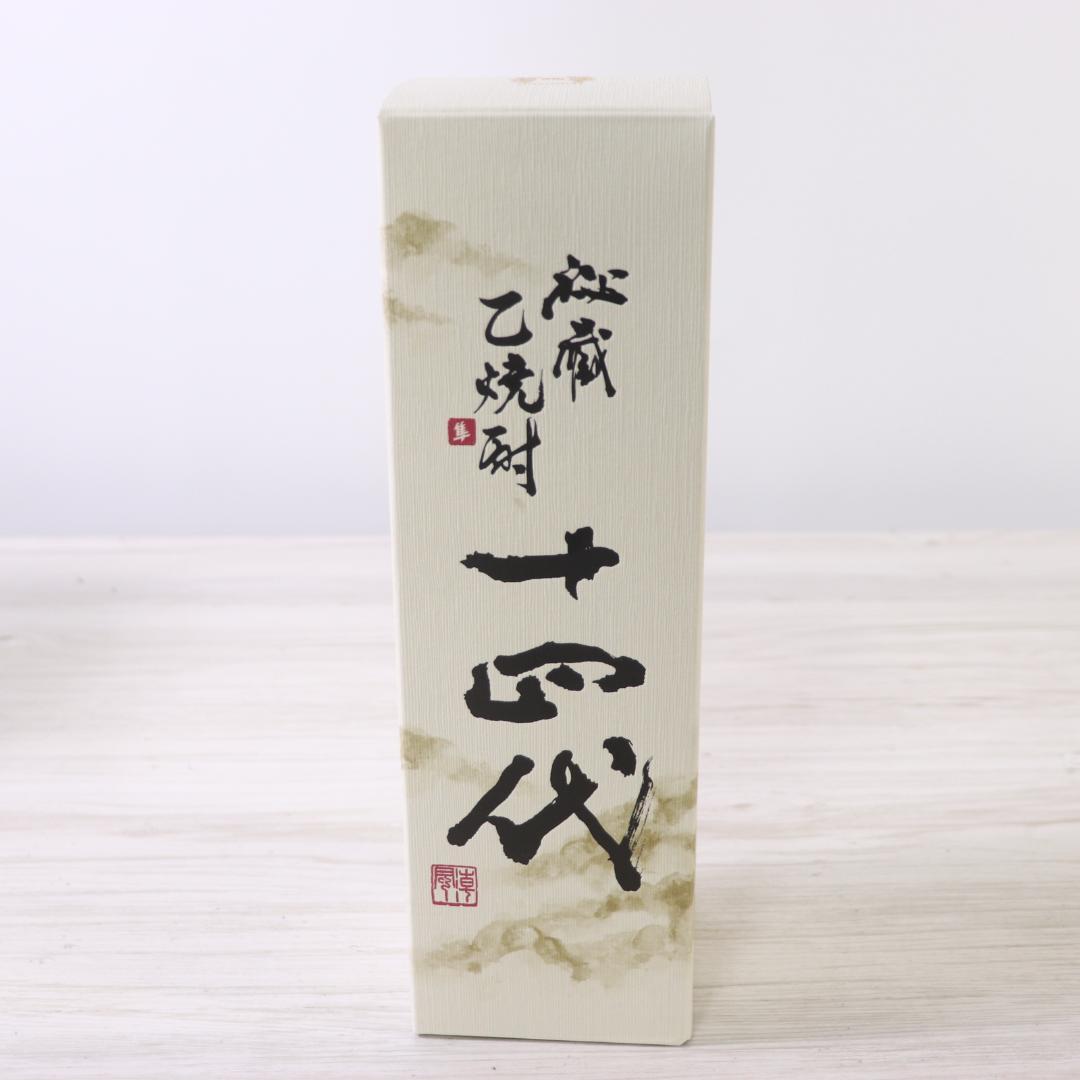 秘蔵
乙焼酎
隼
十四代